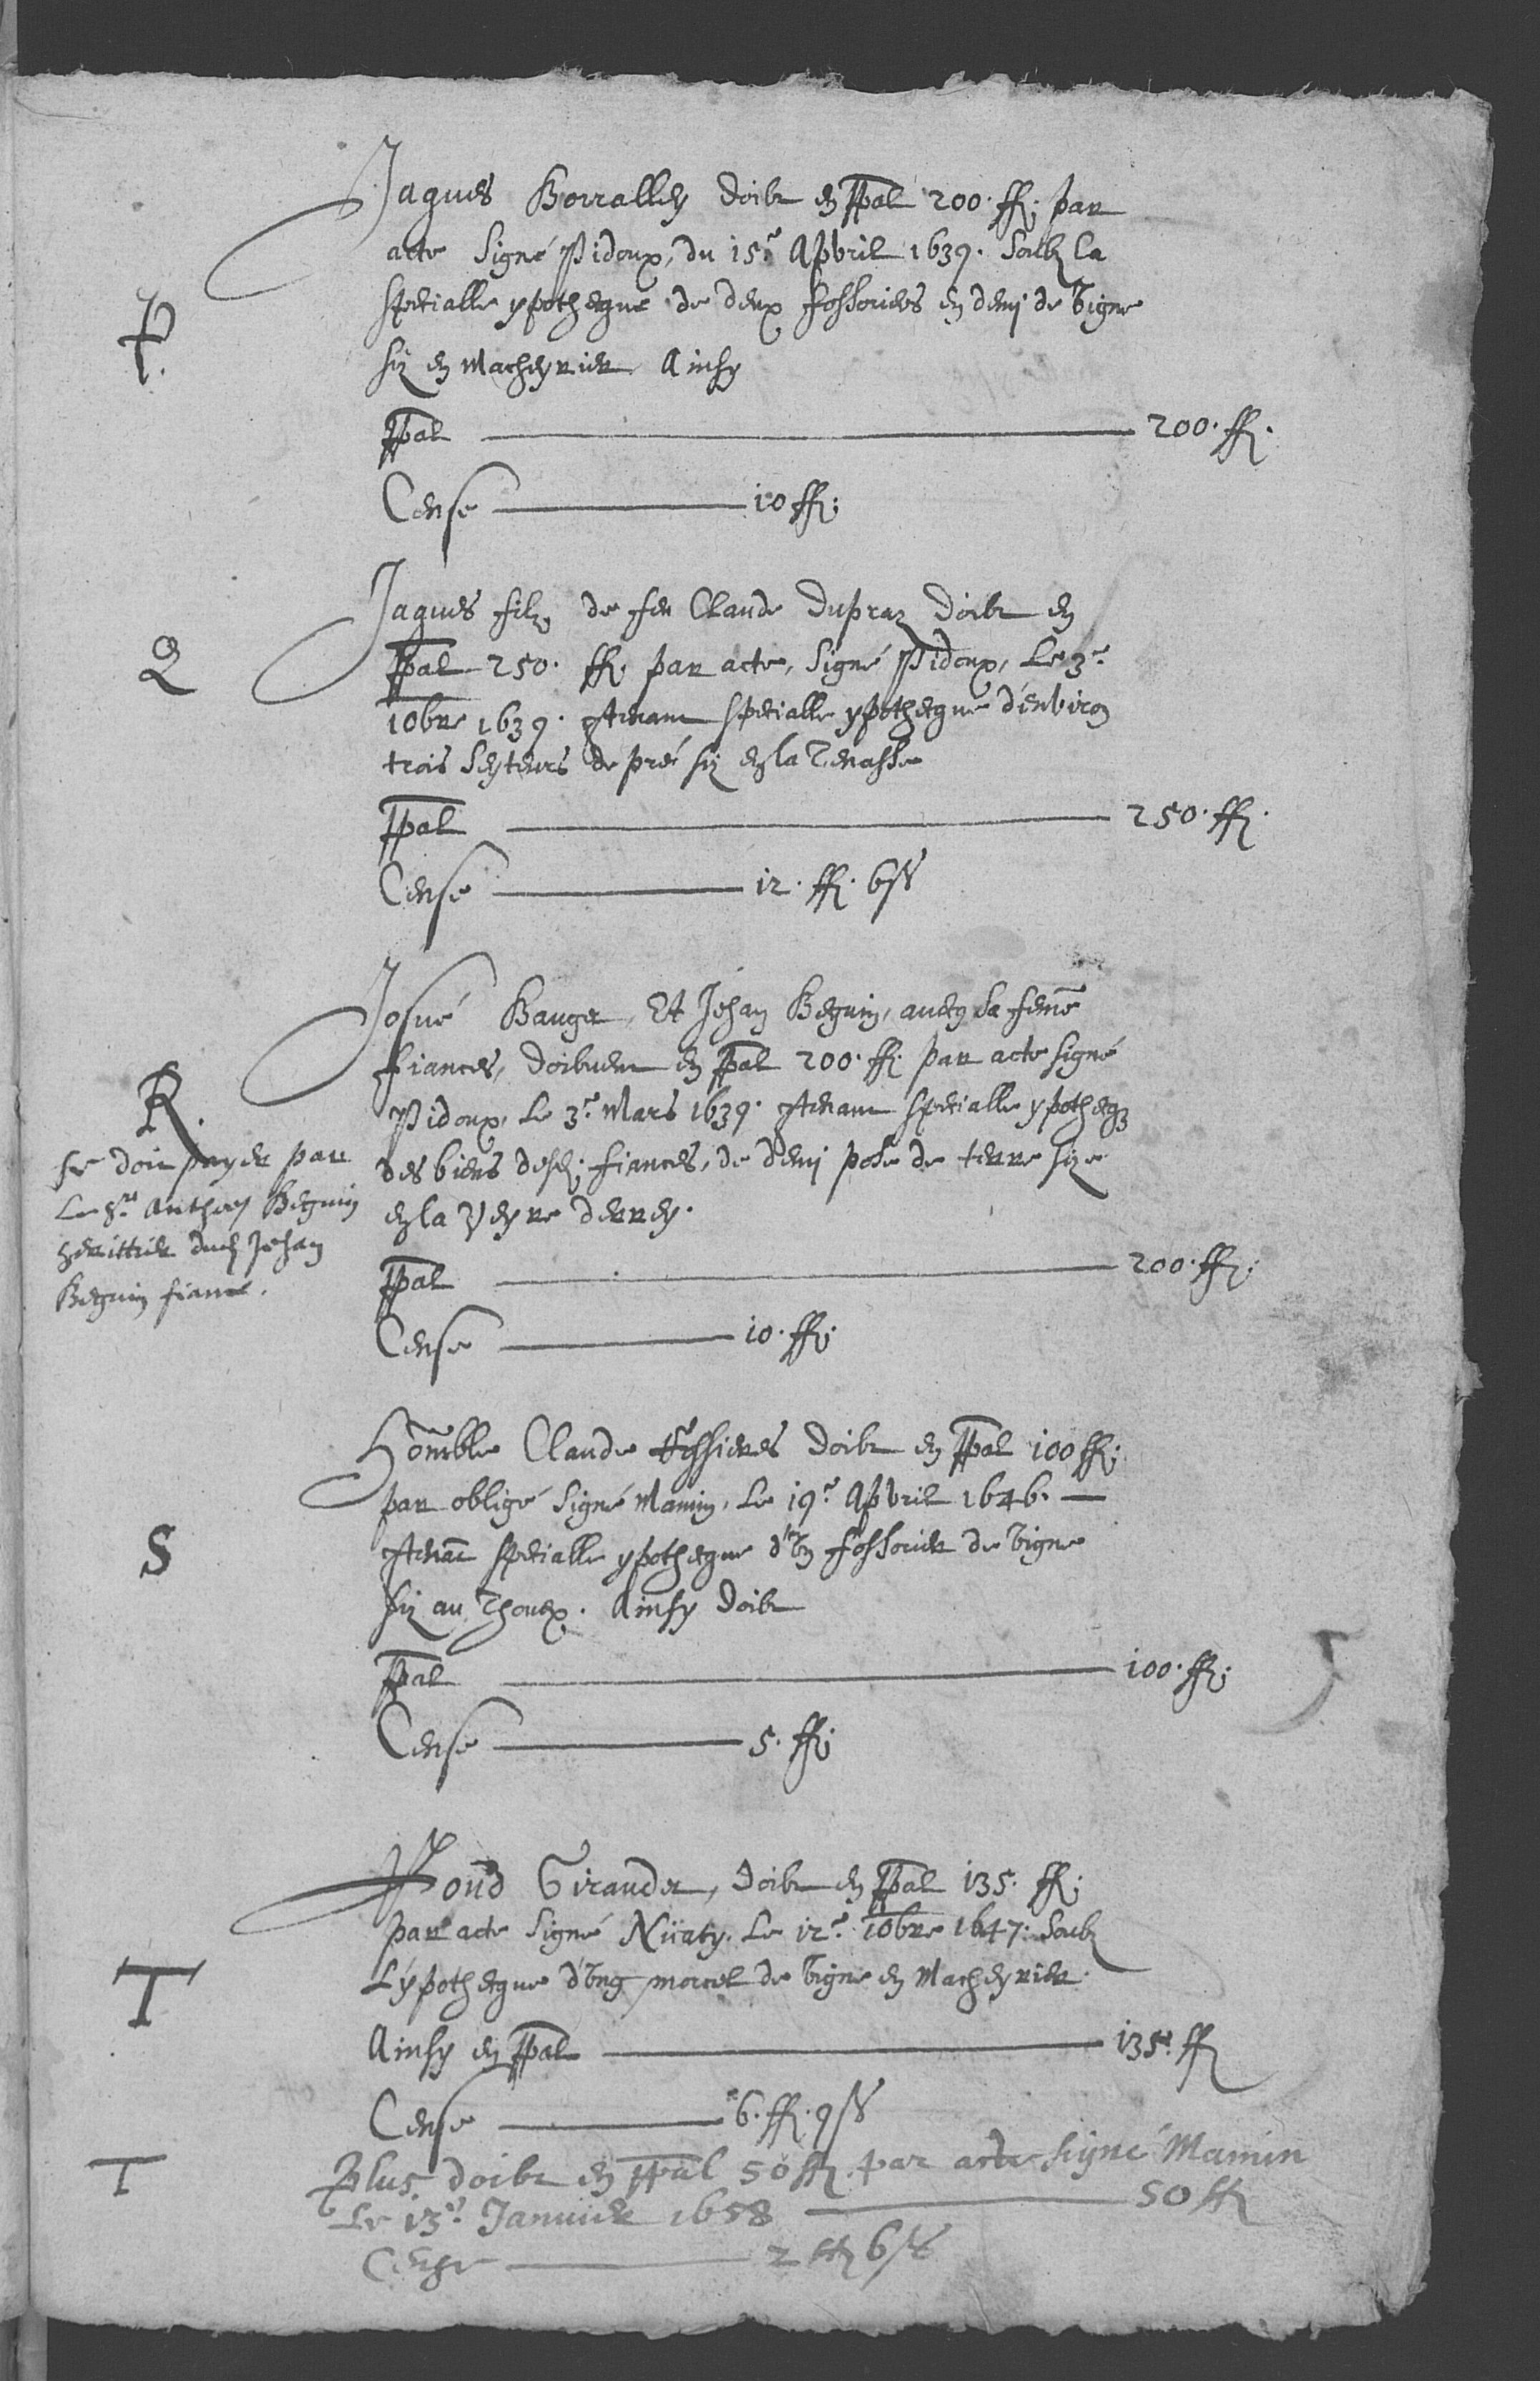 P.
Jaques Borralley doibt en ppal 200. ff. par
acte signé Pidoux, du 15e Apvril 1639. soubz la
specialle ypotheque de deux fossoriers en demi de vigne
siz en Macheyrier Ainsy
ppal 200. ff.
Cense 10 ff.
Q
Jaques filz de feu Claude Dupraz doibt en
ppal 250. ff. par acte, signé Pidoux, Le 3e
10bre 1639. specialle ypotheque d'environ
trois seyteurs de pré siz en la Tenasse
ppal 250. ff.
Cense 12. ff. 6 ss
R.
se doit payer par
Le Sr. Anthoy Beguin
herittier dud Jehan
Beguin fiance.
Josué Bauger, Et Jehan Beguin, avecq sa feme
fiances, doibvent en ppal 200. ff. par acte signé
Pidoux, Le 3e Mars 1639. specialle ypotheq
des biens desd. fiances, de demi pose de terre size
en la Veyre derrey.
ppal 200. ff.
Cense 10. ff.
S
Honnble Claude doibt en ppal 100 ff.
par obligé signé Mamin, Le 19e Apvril 1646.
specialle ypotheque d'vn fossorier de vigne
siz au Thouex. Ainsy doibt
ppal 100. ff.
Cense 5. ff.
T
Noud Girauder, doibt en ppal 135. ff.
par acte signé Nüaty, Le 12e 10bre 1647. soubz
L'ypotheque d'vng morcel de vigne en Macheyrier.
Ainsy en ppal 135. ff
Cense 6. ff. 9 ss
T
Plus doibt en ppal 50 ff. par acte signé Mamin
Le 13e Janvier 1658 50 ff
Cense 2 ff 6 ss